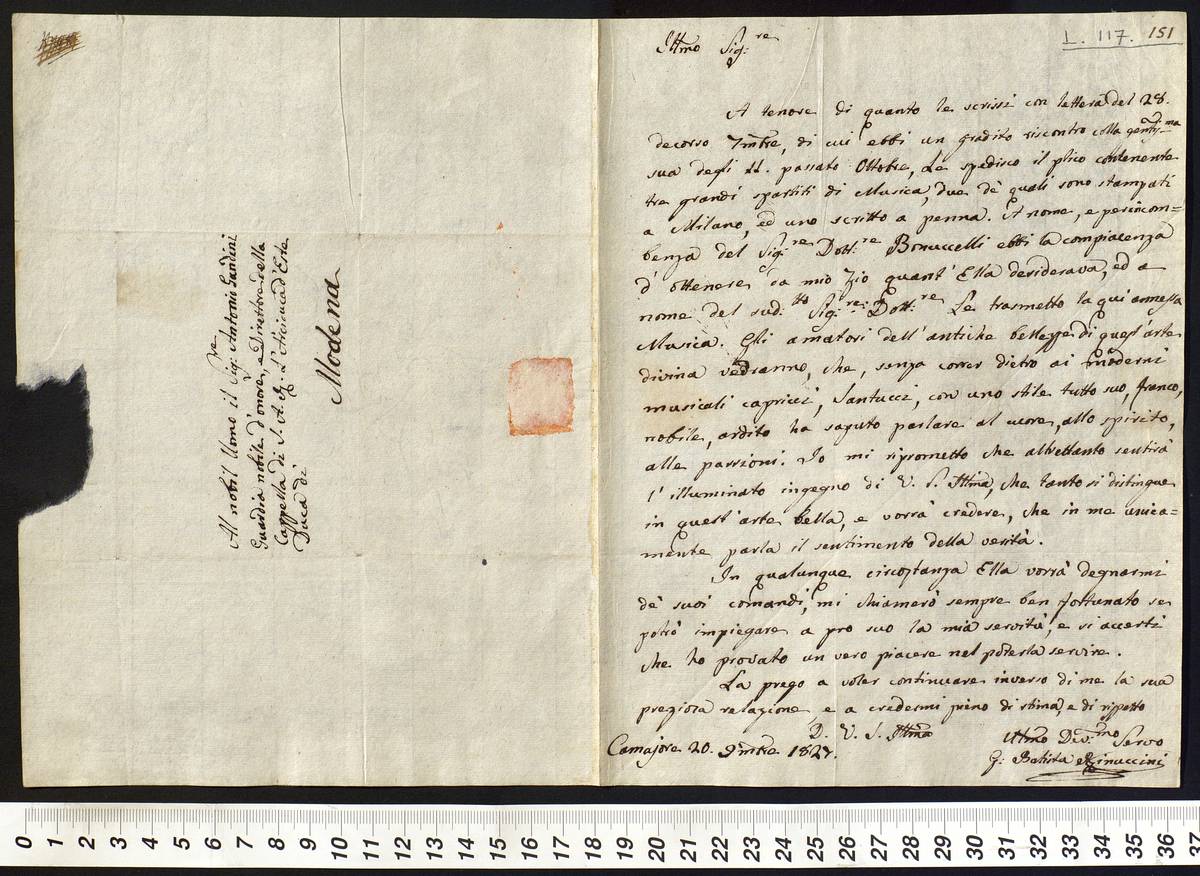 Al nobil Uomo il Sig:re Antonio Gandini
Guardia nobile d'onore, e Direttore della
Cappella di S. A. R. L'Arciduca d'Este
Duca di
Modena
L. 117. 151
Illmo Sig:re
A tenore di quanto le scrissi con lettera del 28.
decorso 7mbre, di cui ebbi un gradito riscontro colla gentilma
sua degli 11. passato Ottobre, Le spedisco il plico contenente
tre grandi spartiti di Musica, due de' quali sono stampati
a Milano, ed uno scritto a penna. A nome, e per incom=
benza del Sig:re Dott:re Bonuccelli ebbi la compiacenza
d'ottenere da mio zio quant'Ella desiderava, ed a
nome del sud:tto Sig:re Dott:re Le trasmetto la qui annessa
Musica. Gli amatori dell'antiche bellezze di quest'arte
divina vedranno, che, senza correr dietro ai moderni
musicali capricci, Santucci, con uno stile tutto suo, franco,
nobile, ardito ha saputo parlare al cuore, allo spirito,
alle passioni. Io mi riprometto che altrettanto sentirà
l'illuminato ingegno di V. S. Illma, che tanto si distingue
in quest'arte bella, e vorrà credere, che in me unica=
mente parla il sentimento della verità.
In qualunque circostanza Ella vorrà degnarmi
de' suoi comandi, mi chiamerò sempre ben fortunato se
potrò impiegare a pro suo la mia servitù, e si accerti
che ho provato un vero piacere nel poterla servire.
La prego a voler continuare inverso di me la sua
pregiosa relazione, e a credermi pieno di stima, e di rispetto
D. V. S. Illma
Camajore 20. 9mbre 1827.
Umo Div:mo Servo
G: Batista Rinuccini
0 1 2 3 4 5 6 7 8 9 10 11 12 13 14 15 16 17 18 19 20 21 22 23 24 25 26 27 28 29 30 31 32 33 34 35 36 37